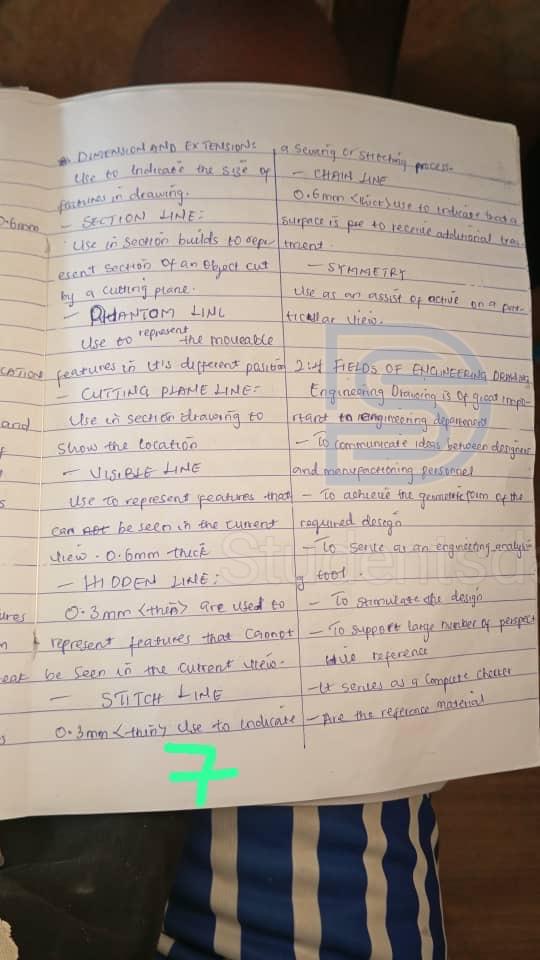 DIMENSION AND EXTENSION:
Use to Indicate the size of
features in drawing.
- SECTION LINE:
Use in section builds to repr
esent section of an object cut
by a cutting plane.
- PHANTOM LINE
Use to represent the moveable
features in it's different position
- CUTTING PLANE LINE:
Use in section drawing to
show the location
- VISIBLE LINE
Use to represent features that
can be seen in the current
view. 0.6mm thick
- HIDDEN LINE:
0.3mm <thin> are used to
represent features that cannot
be seen in the current view.
- STITCH LINE
0.3mm <thin> Use to indicate
a sewing or stitching process.
- CHAIN LINE
0.6mm <thick> use to indicate that a
surface is to receive additional trea
tment.
- SYMMETRY
Use as an assist of active on a par
ticular view.
2:4 FIELDS OF ENGINEERING DRAWING
Engineering Drawing is of great impo
rtant to engineering department
- To communicate ideas between designers
and manufactioning personnel
- To achieve the geometric form of the
required design
- To serve as an engineering analysin
g tool.
- To stimulate the design
- To support large number of perspect
reference
- It serves as a complete checker
- Are the reference material
0.6mm
CATION
and
s
ures
eak
s
7
Students